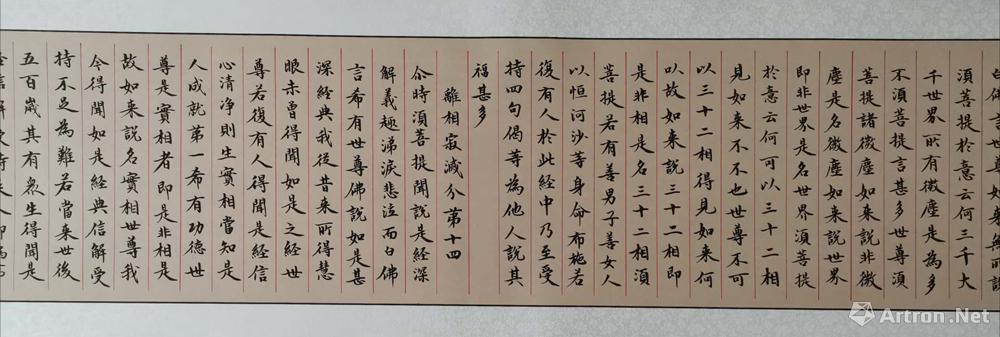 須菩提於意云何三千大
千世界所有微塵是為多
不須菩提言甚多世尊須
菩提諸微塵如來說非微
塵是名微塵如來說世界
即非世界是名世界須菩提
於意云何可以三十二相
見如來不不也世尊不可
以三十二相得見如來何
以故如來說三十二相即
是非相是名三十二相須
菩提若有善男子善女人
以恒河沙等身命布施若
復有人於此經中乃至受
持四句偈等為他人說其
福甚多
離相寂滅分第十四
尒時須菩提聞說是經深
解義趣涕淚悲泣而白佛
言希有世尊佛說如是甚
深經典我從昔來所得慧
眼未曾得聞如是之經世
尊若復有人得聞是經信
心清淨則生實相當知是
人成就第一希有功德世
尊是實相者即是非相是
故如來說名實相世尊我
今得聞如是經典信解受
持不足為難若當來世後
五百歲其有眾生得聞是
Artron.Net